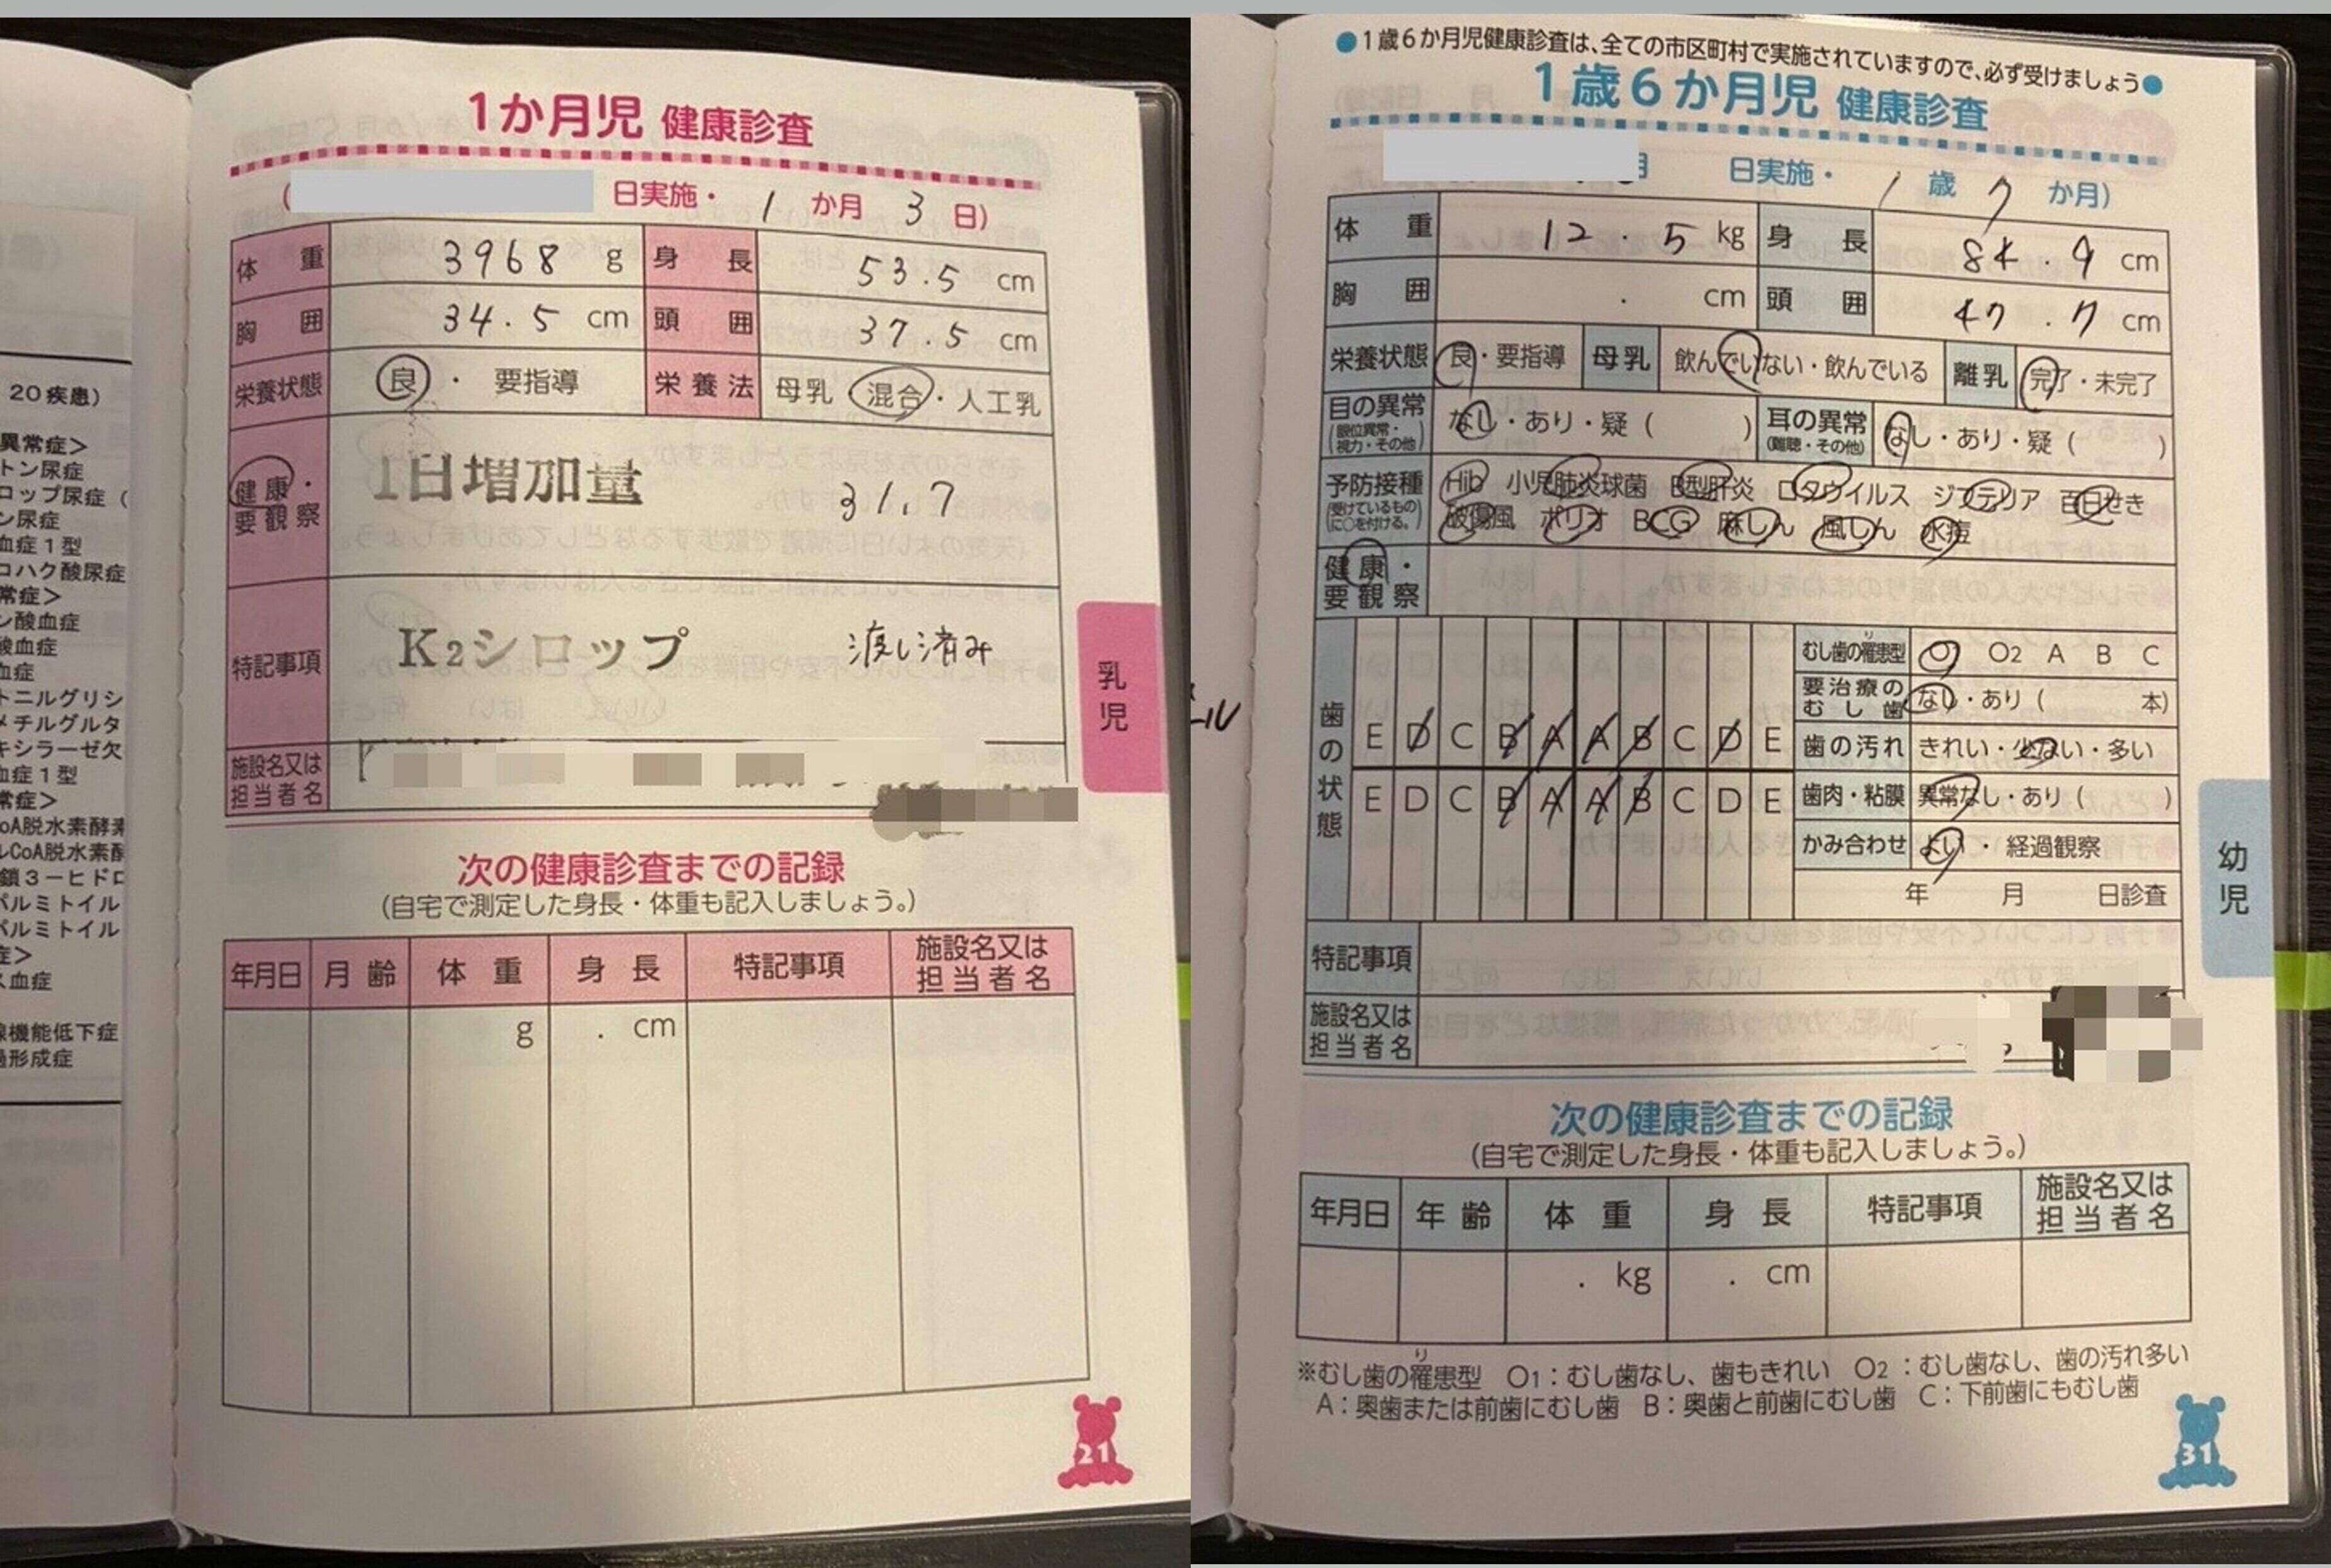 20疾患)
異常症＞
トン尿症
ロップ尿症（
ン尿症
血症1型
コハク酸尿症
常症＞
ン酸血症
酸血症
血症
トニルグリシ
メチルグルタ
キシラーゼ欠
血症1型
常症＞
oA脱水素酵素
ルCoA脱水素酵
鎖3－ヒドロ
パルミトイル
パルミトイル
症＞
ス血症
線機能低下症
過形成症
1か月児 健康診査
( 日実施・ 1 か月 3 日)
体重 3968 g 身長 53.5 cm
胸囲 34.5 cm 頭囲 37.5 cm
栄養状態 良・要指導 栄養法 母乳 混合・人工乳
健康・要観察 1日増加量 31.7
特記事項 K2シロップ 渡し済み
施設名又は
担当者名
乳児
次の健康診査までの記録
(自宅で測定した身長・体重も記入しましょう。)
年月日 月齢 体重 身長 特記事項 施設名又は担当者名
g . cm
21
●1歳6か月児健康診査は、全ての市区町村で実施されていますので、必ず受けましょう●
1歳6か月児 健康診査
月 日実施・ 1 歳 7 か月)
体重 12.5 kg 身長 84.9 cm
胸囲 . cm 頭囲 47.7 cm
栄養状態 良・要指導 母乳 飲んでいない・飲んでいる 離乳 完了・未完了
目の異常 (眼位異常・視力・その他) なし・あり・疑( ) 耳の異常 (難聴・その他) なし・あり・疑( )
予防接種 (受けているものに○を付ける。) Hib 小児肺炎球菌 B型肝炎 ロタウイルス ジフテリア 百日せき
破傷風 ポリオ BCG 麻しん 風しん 水痘
健康・
要観察
歯の状態
E D C B A A B C D E
E D C B A A B C D E
むし歯の罹患型 り O1 O2 A B C
要治療のむし歯 なし・あり( 本)
歯の汚れ きれい・少ない・多い
歯肉・粘膜 異常なし・あり( )
かみ合わせ よい・経過観察
年 月 日診査
特記事項
施設名又は
担当者名
幼児
次の健康診査までの記録
(自宅で測定した身長・体重も記入しましょう。)
年月日 年齢 体重 身長 特記事項 施設名又は担当者名
. kg . cm
※むし歯の罹患型 り O1：むし歯なし、歯もきれい O2：むし歯なし、歯の汚れ多い
A：奥歯または前歯にむし歯 B：奥歯と前歯にむし歯 C：下前歯にもむし歯
31